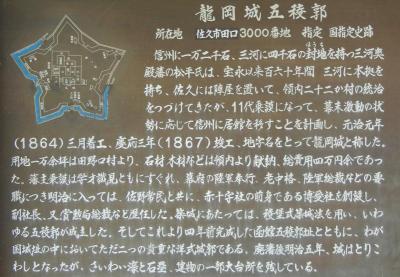 龍岡城五稜郭
所在地 佐久市田口3000番地 指定 国指定史跡
信州に一万二千石、三河に四千石の封地を持つ三河奥
殿藩の松平氏は、宝永以来百六十年間 三河に本拠を
持ち、佐久には陣屋を置いて、領内二十二か村の統治
をつづけてきたが、11代乗謨になって、幕末激動の状
勢に応じて信州に居館を移すことを計画し、元治元年
(1864)三月着工、慶応三年(1867)竣工、地字名をとって龍岡城と称した。
用地一万余坪は田野口村より、石材木材などは領内より献納、総費用四万両余であっ
た。藩主乗謨は学才識見ともにすぐれ、幕府の陸軍奉行、老中格、陸軍総裁などの要
職につき明治に入っては、佐野常民と共に、赤十字社の前身である博愛社を創設し、
副社長、又賞勲局総裁など歴任した。築城にあたっては、稜堡式築城法を用い、いわ
ゆる五稜郭が成立した。そしてこれより四年前完成した函館五稜郭址とともに、わが
国城址の中においてただ二つの貴重な洋式城郭である。廃藩後明治五年、城はとりこ
わしとなったが、さいわい濠と石塁、建物の一部大台所を残している。